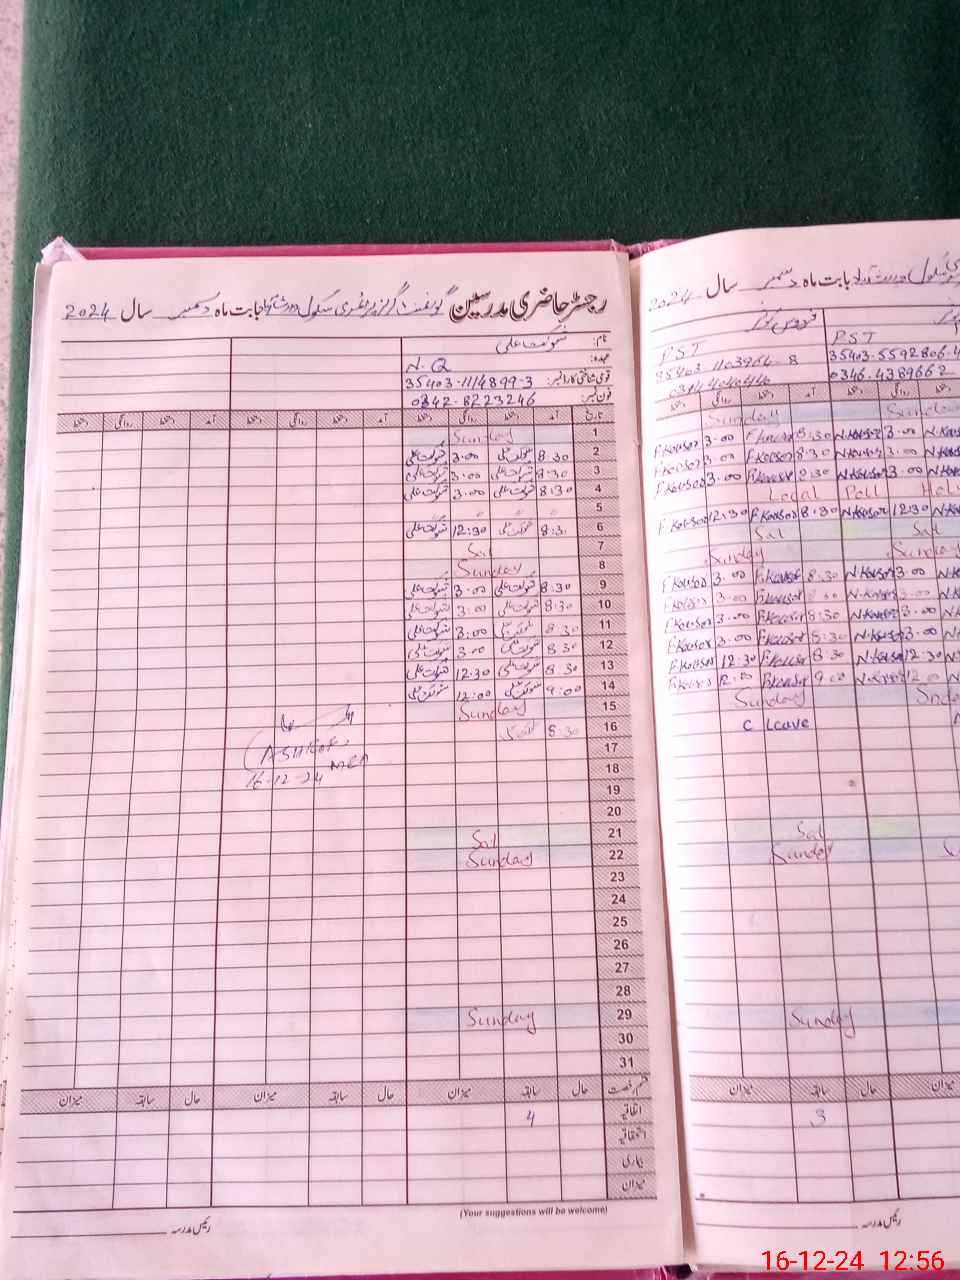 رجسٹر حاضری مدرسین گورنمنٹ گرلز پرائمری سکول بابت ماہ دسمبر سال 2024
نام: شوکت علی
عہدہ: N.Q
قومی شناختی کارڈ نمبر: 35403-1114899-3
فون نمبر: 0342-8223246
تاریخ آمد دستخط روانگی دستخط آمد دستخط روانگی دستخط آمد دستخط روانگی دستخط
1 Sunday
2 8:30 شوکت علی 3.00 شوکت علی
3 8:30 شوکت علی 3.00 شوکت علی
4 8:30 شوکت علی 3.00 شوکت علی
5
6 8:30 شوکت علی 12:30 شوکت علی
7 Sat
8 Sunday
9 8:30 شوکت علی 3.00 شوکت علی
10 8:30 شوکت علی 3.00 شوکت علی
11 8:30 شوکت علی 3.00 شوکت علی
12 8:30 شوکت علی 3.00 شوکت علی
13 8:30 شوکت علی 12.30 شوکت علی
14 9:00 شوکت علی 12:00 شوکت علی
15 Sunday
16 8:30
MEA
16-12-24
17
18
19
20
21 Sat
22 Sunday
23
24
25
26
27
28
29 Sunday
30
31
قسم رخصت حال سابقہ میزان حال سابقہ میزان حال سابقہ میزان
اتفاقیہ 4
استحقاقیہ
بیماری
میزان
(Your suggestions will be welcome)
رئیس مدرسہ
بابت ماہ دسمبر سال 2024
فردوس کوثر
PST PST
35403-1103964-8 35403-5592806-4
0344 4040446 0346-4389662
دستخط روانگی دستخط آمد دستخط روانگی دستخط
Sunday Sunday
F.Kousor 3.00 F.Kousor 8:30 N.Kousor 3.00
F.Kousor 3.00 F.Kousor 8:30 N.Kousor 3.00
F.Kousor 3.00 F.Kousor 8:30 N.Kousor 3.00
Local Poll
F.Kousor 12:30 F.Kousor 8:30 N.Kousor 12:30
Sat Sat
Sunday Sunday
F.Kousor 3.00 F.Kousor 8:30 N.Kousor 3.00
F.Kousor 3.00 F.Kousor 8:30 N.Kousor 3.00
F.Kousor 3.00 F.Kousor 8:30 N.Kousor 3.00
F.Kousor 3.00 F.Kousor 8:30 N.Kousor 3.00
F.Kousor 12.30 F.Kousor 8:30 N.Kousor 12:30
F.Kousor 12.00 F.Kousor 9.00 N.Kousor 12.00
Sunday
C leave
Sat
Sunday
Sunday
میزان سابقہ حال میزان
3
رئیس مدرسہ
16-12-24 12:56